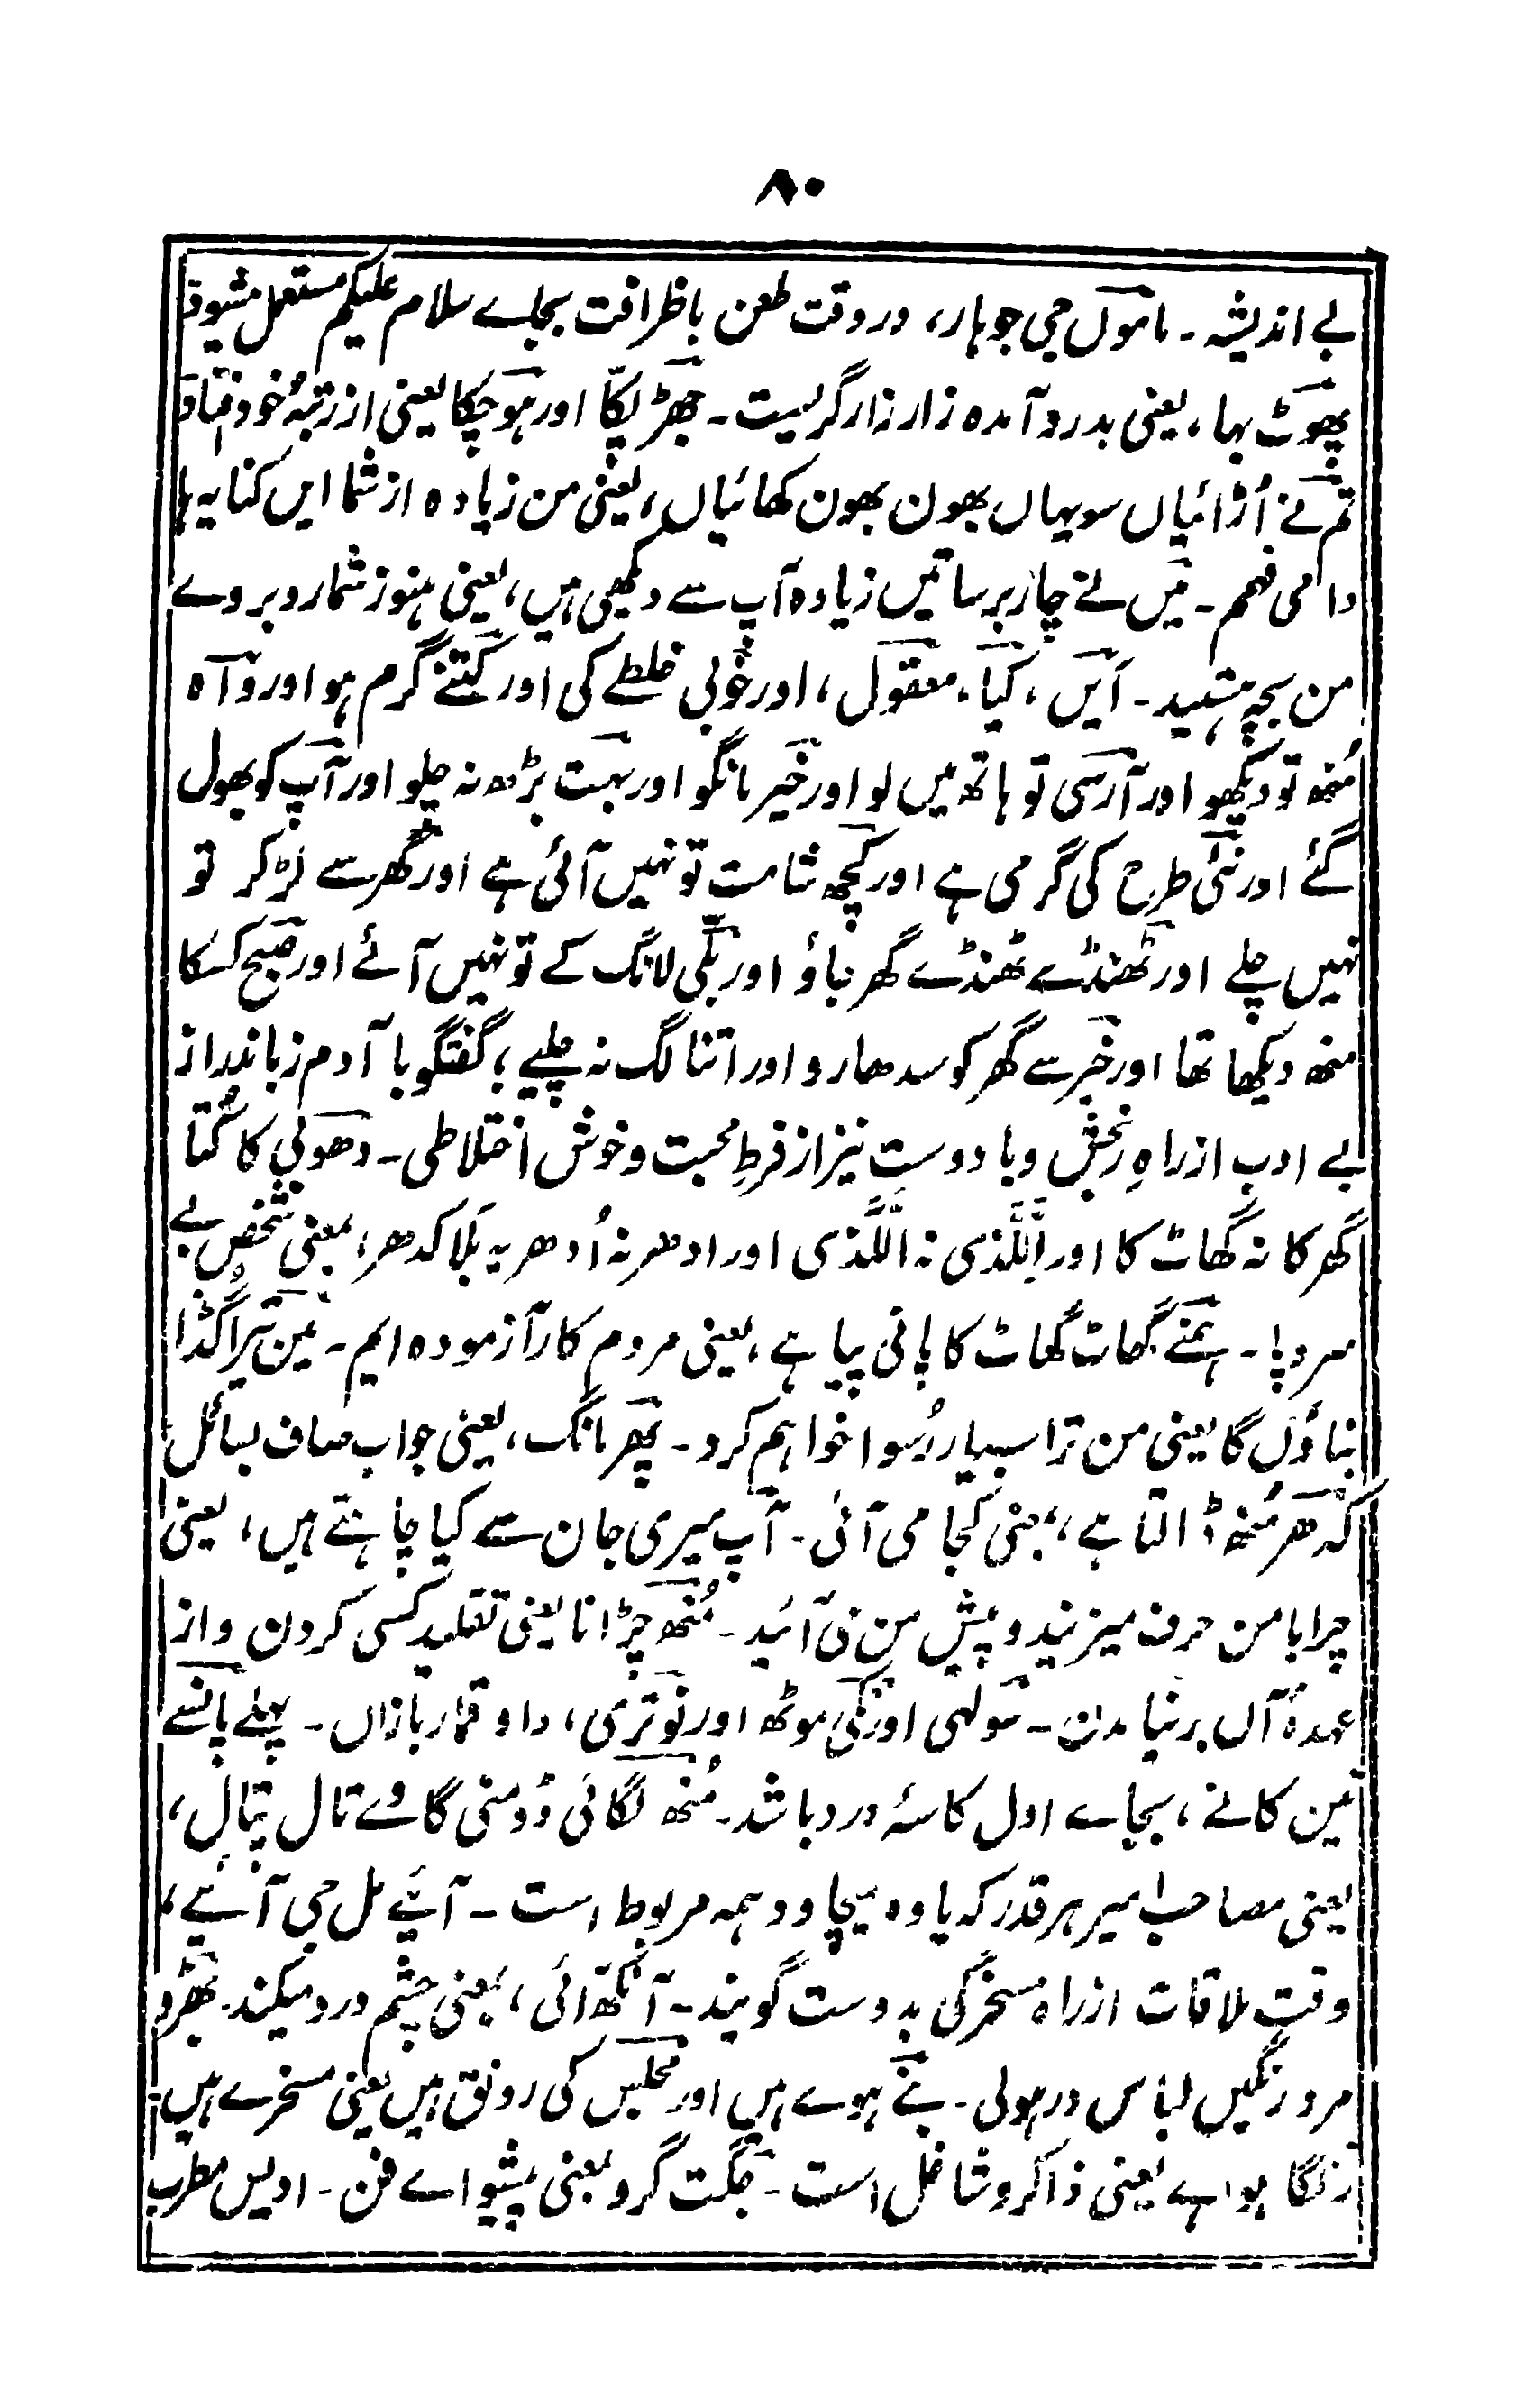 ۸۰
بے اندیشہ۔ ماموں جی جوہار، در وقت طعن باظرافت بجاے سلام علیکم مستعمل میشود
پھوٹ بہا، یعنی بدرد آمدہ زار زار گریست۔ جھڑ پکا اور ہو چکا یعنی از رتبۂ خود افتاد
تم نے اُڑائیاں سو یہاں بھون بھون کھائیاں، یعنی من زیادہ از شما ایں کنایہ ہا
وا می فہم۔ میں نے چار برساتیں زیادہ آپ سے دیکھی ہیں، یعنی ہنوز شما روبروے
من بچہ ہستید۔ ایں، کیا، معقول، اور خوبی خلطے کی اور کتنے گرم ہو اور وآہ
مُنھ تو دیکھو اور آرسی تو ہاتھ میں لو اور خیر مانگو اور بہت بڑھ نہ چلو اور آپ کو بھول
گئے اور نئی طرح کی گرمی ہے اور کچھ شامت تو نہیں آئی ہے اور گھر سے لڑ کر تو
نہیں چلے اور ٹھنڈے ٹھنڈے گھر جاؤ اور بلی لانگ کے تو نہیں آئے اور صبح کسکا
منھ دیکھا تھا اور خیر سے گھر کو سدھارو اور اتنا لگ نہ چلیے؛ گفتگو با آدم زباندراز
بے ادب از راہِ رنجش و با دوست نیز از فرطِ محبت و خوش اختلاطی۔ دھوبی کا کُتا
گھر کا نہ گھاٹ کا اور اِلَّلذی نہ اُلَّلذی اور ادھر نہ اُدھر یہ بَلا کدھر، بمعنی شخصِ بے
سر و پا۔ ہمنے گھاٹ گھاٹ کا پانی پیا ہے، یعنی مردم کار آزمودہ ایم۔ مین تیرا گڈا
بناؤں گا یعنی من ترا بسیار رُسوا خواہم کرد۔ پھر مانگ، یعنی جواب صاف بسائل
کدھر مُنھ ڈالتا ہے، بمعنی کُجا می آئی۔ آپ میری جان سے کیا چاہتے ہیں، یعنی
چرا با من حرف میزنید و پیش من می آئید۔ مُنھ چڑانا یعنی تقلید کسی کردن و از
عہدۂ آں برنیامدن۔ سولہی اور نکی موٹھ اور نوتری، داو قمار بازاں۔ پہلے پانسے
تین کانے، بجاے اول کاسہ و درد باشد۔ مُنھ لگائی ڈومنی گاوے تال بتال،
یعنی مصاحب امیر ہر قدر کہ یاوہ میچاود ہمہ مربوط است۔ آئیے مل جی آئیے،
وقتِ ملاقات از راہ مسخرگی بدوست گویند۔ آنکھ آئی، بمعنی چشم درد میکند۔
مرد رنگیں لباس در ہولی۔ بنے ہوے ہیں اور مجلس کی رونق ہیں یعنی مسخرے ہیں
رنگا ہوا ہے یعنی ذاکر و شاغل است۔ جگت گرو بمعنی پیشواے فن۔ ادیس مطرب